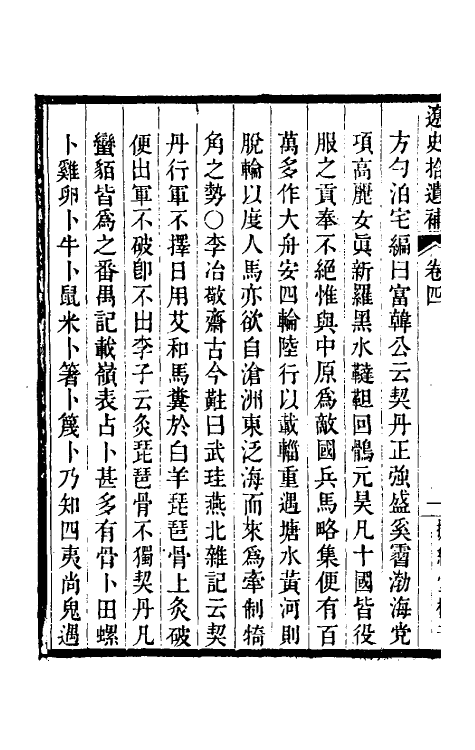 遼史拾遺補 卷四 一
方勺泊宅編曰富韓公云契丹正強盛奚霫渤海党
項高麗女真新羅黑水韃靼回鶻元昊凡十國皆役
服之貢奉不絕惟與中原為敵國兵馬略集便有百
萬多作大舟安四輪陸行以載輜重遇塘水黃河則
脫輪以度人馬亦欲自滄洲東泛海而來為牽制犄
角之勢〇李冶敬齋古今黈曰武珪燕北雜記云契
丹行軍不擇日用艾和馬糞於白羊琵琶骨上灸破
便出軍不破卽不出李子云灸琵琶骨不獨契丹凡
蠻貊皆為之番禺記載嶺表占卜甚多有骨卜田螺
卜雞卵卜牛卜鼠米卜箸卜篾卜乃知四夷尚鬼遇